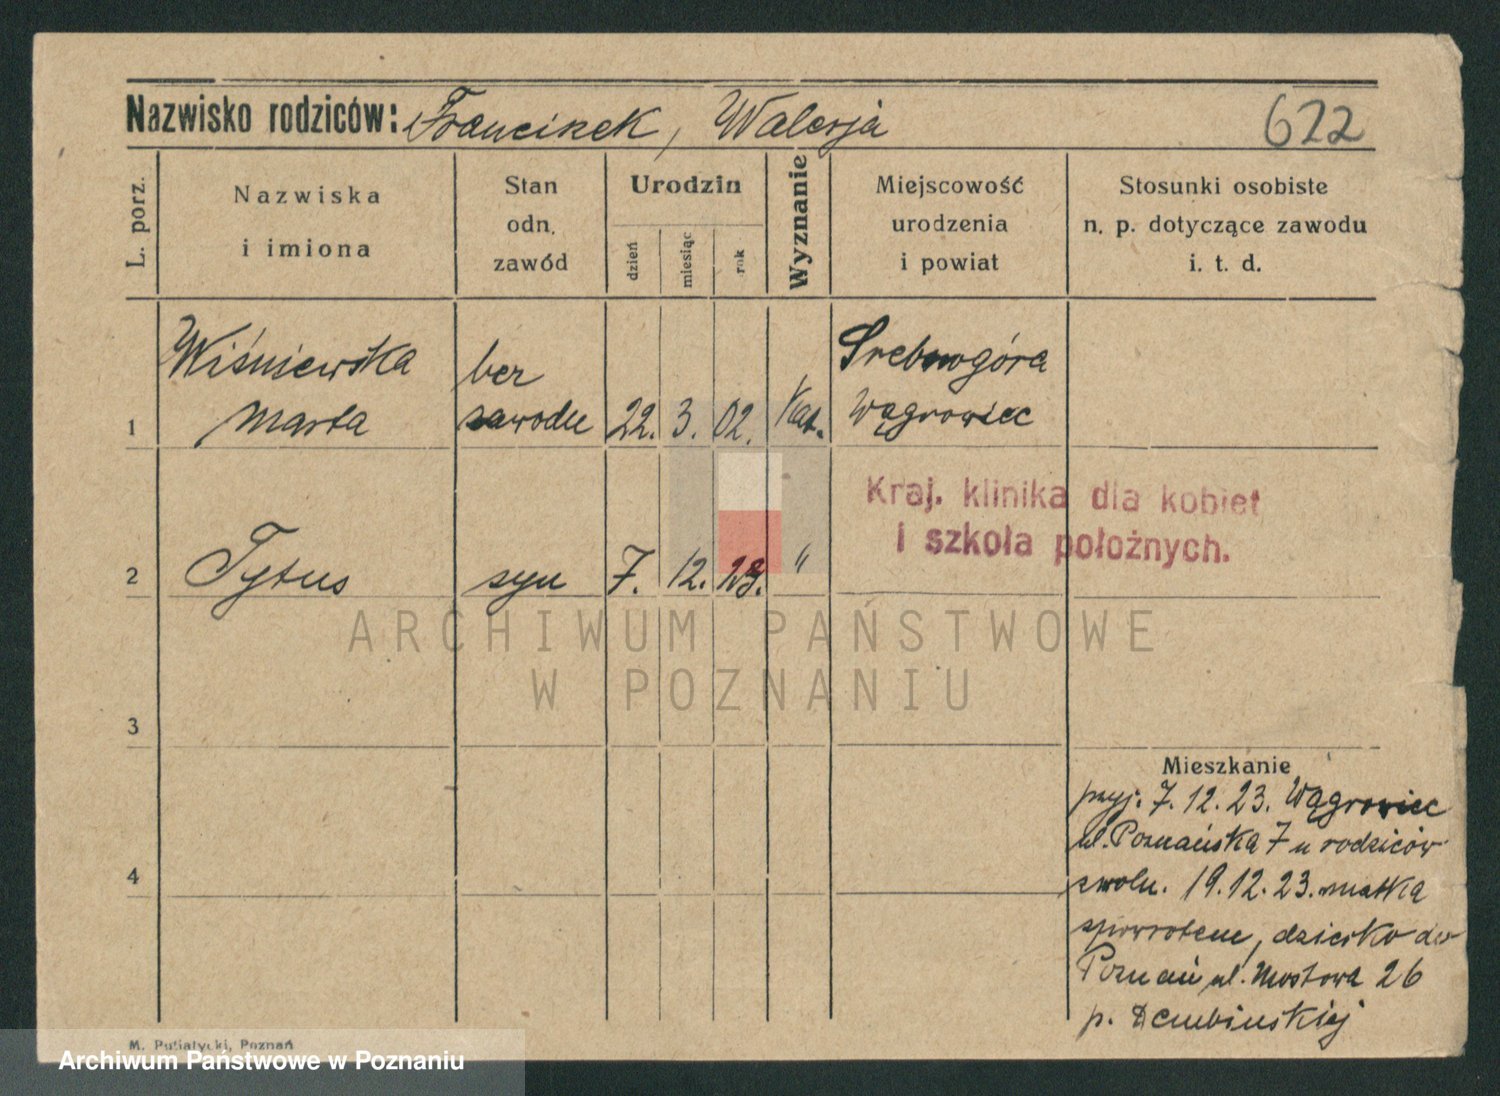 Nazwisko rodziców: Franciszek, Walerja
622
L. porz.
Nazwiska
i imiona
Stan
odn.
zawód
Urodzin
dzień
miesiąc
rok
Wyznanie
Miejscowość
urodzenia
i powiat
Stosunki osobiste
n. p. dotyczące zawodu
i. t. d.
1
Wiśniewska
Marta
bez
zawodu
22. 3. 02.
Kat.
Srebrnogóra
Wągrowiec
2
Tytus
syn
7. 12. 23.
"
Kraj. klinika dla kobiet
i szkoła położnych.
ARCHIWUM PAŃSTWOWE
W POZNANIU
3
4
Mieszkanie
przyj. 7. 12. 23. Wągrowiec
ul. Poznańska 7 u rodziców
zwoln. 19. 12. 23. matka
spowrotem, dziecko do
Poznań ul. Mostowa 26
p. Dembińskiej
M. Putiatycki, Poznań
Archiwum Państwowe w Poznaniu